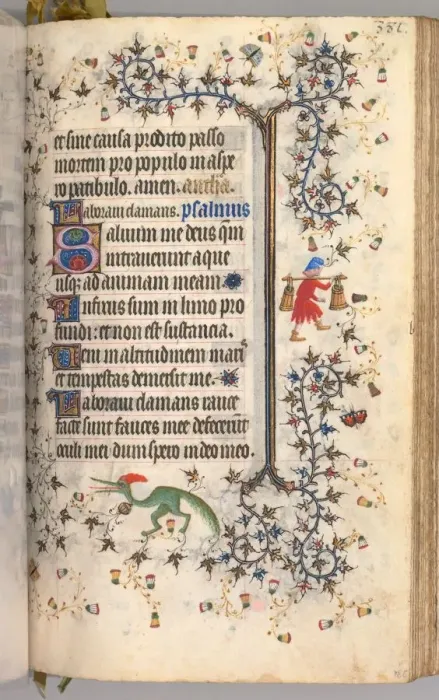 et sine causa prodito passo
mortem pro populo in aspe
ro patibulo. amen. antha.
Laboraui clamans. psalmus
Saluum me deus qm
intrauerunt aque
usq; ad animam meam
Infixus sum in limo pro
fundi: et non est sustancia.
Ueni in altitudinem maris
et tempestas demersit me.
Laboraui clamans rauce
facte sunt fauces mee defecerunt
oculi mei dum spero in deo meo.